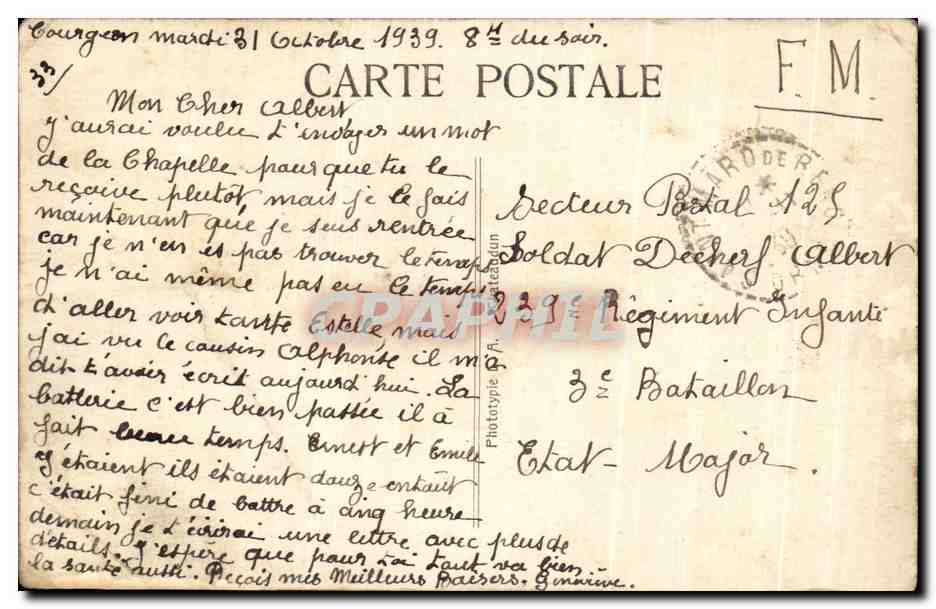 Courgeon mardi 31 Octobre 1939. 8H du soir.
CARTE POSTALE
F. M.
33/
Mon Cher Albert
J'aurai voulu t'envoyer un mot
de la Chapelle pour que tu le
reçoive plutôt, mais je le fais
maintenant que je suis rentrée
car je n'en ès pas trouver le temps
je n'ai même pas eu le temps
d'aller voir tante Estelle, mais
j'ai vu le cousin Alphonse il m'a
dit t'avoir écrit aujourd'hui. La
batterie c'est bien passée il à
fait beau temps. Ernest et Emile
y étaient ils étaient douze entout
c'était fini de battre à cinq heure
demain je t'écrirai une lettre avec plus de
détails. J'espère que pour toi tout va bien
la santé aussi. Reçois mes Meilleurs Baisers. Geneviève.
Phototype A. Châteaudun
Secteur Postal 125
Soldat Decherf Albert
239e Régiment Infanti
3e Bataillon
Etat-Major.
GRAPHIL